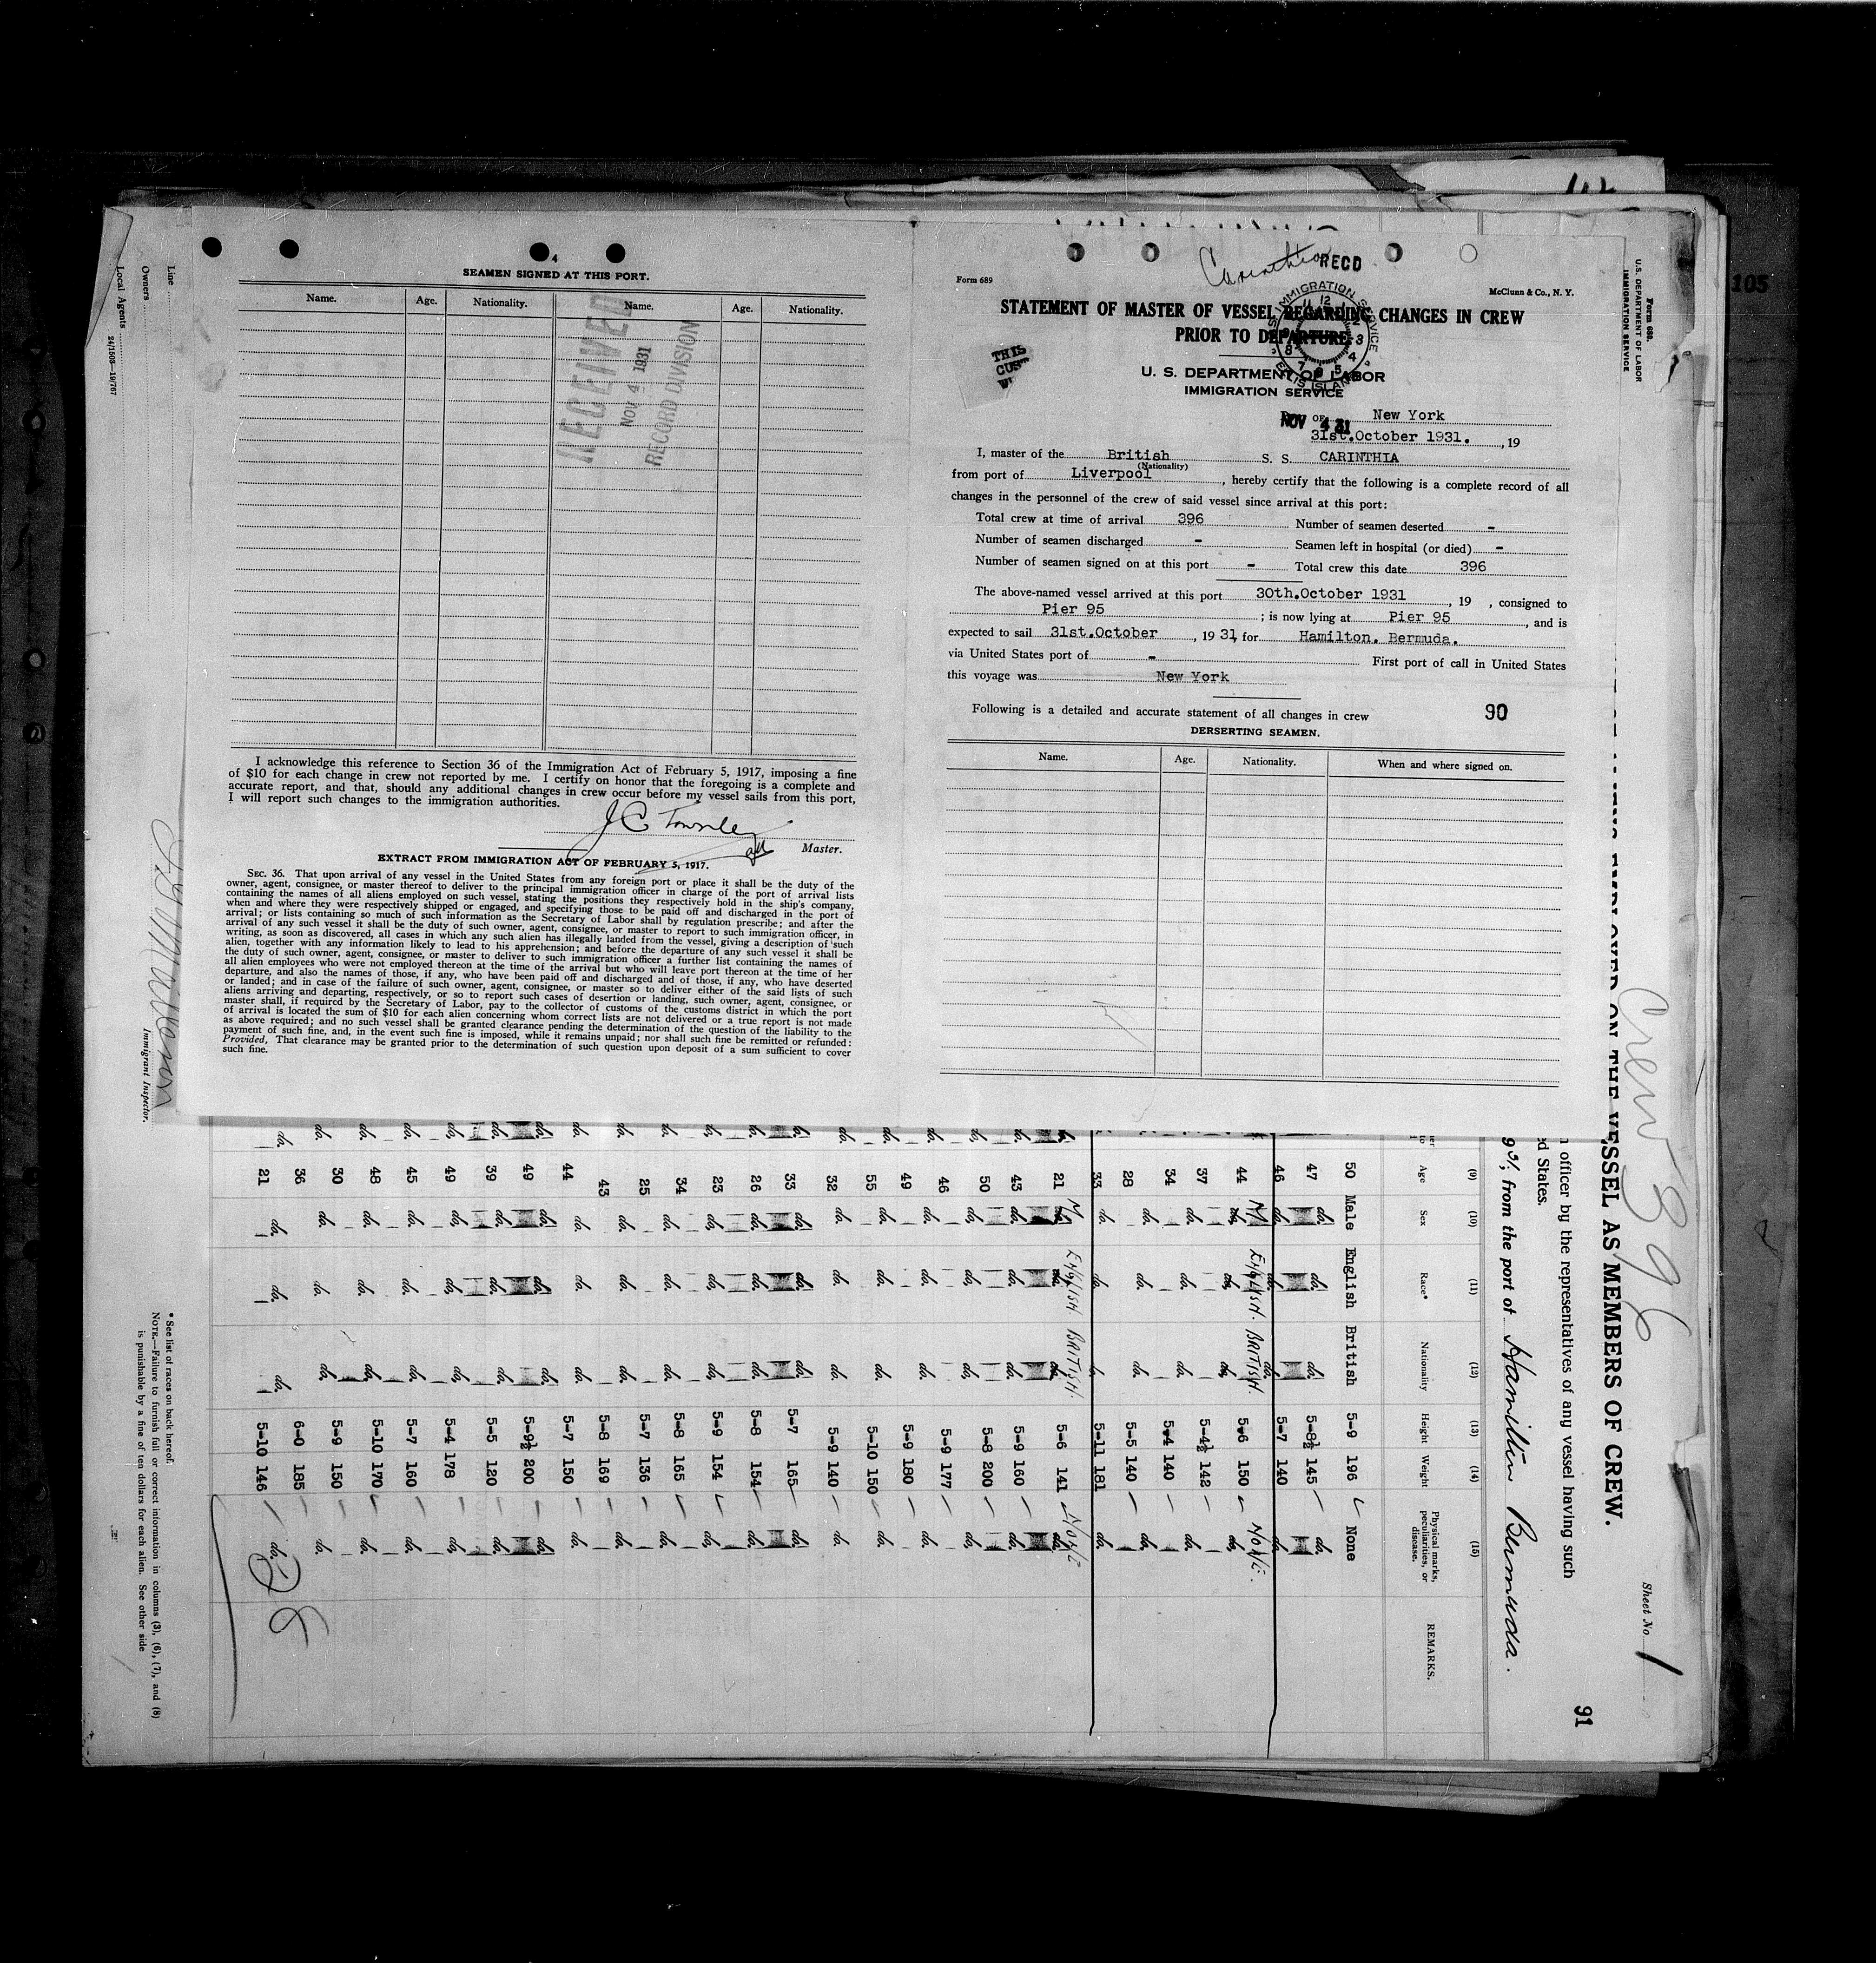 4
SEAMEN SIGNED AT THIS PORT.
Name. Age. Nationality. Name. Age. Nationality.
RECEIVED
NOV 4 1931
RECORD DIVISION
I acknowledge this reference to Section 36 of the Immigration Act of February 5, 1917, imposing a fine
of $10 for each change in crew not reported by me. I certify on honor that the foregoing is a complete and
accurate report, and that, should any additional changes in crew occur before my vessel sails from this port,
I will report such changes to the immigration authorities.
J C Townley
Master.
EXTRACT FROM IMMIGRATION ACT OF FEBRUARY 5, 1917.
SEC. 36. That upon arrival of any vessel in the United States from any foreign port or place it shall be the duty of the
owner, agent, consignee, or master thereof to deliver to the principal immigration officer in charge of the port of arrival lists
containing the names of all aliens employed on such vessel, stating the positions they respectively hold in the ship's company,
when and where they were respectively shipped or engaged, and specifying those to be paid off and discharged in the port of
arrival; or lists containing so much of such information as the Secretary of Labor shall by regulation prescribe; and after the
arrival of any such vessel it shall be the duty of such owner, agent, consignee, or master to report to such immigration officer, in
writing, as soon as discovered, all cases in which any such alien has illegally landed from the vessel, giving a description of such
alien, together with any information likely to lead to his apprehension; and before the departure of any such vessel it shall be
the duty of such owner, agent, consignee, or master to deliver to such immigration officer a further list containing the names of
all alien employees who were not employed thereon at the time of the arrival but who will leave port thereon at the time of her
departure, and also the names of those, if any, who have been paid off and discharged and of those, if any, who have deserted
or landed; and in case of the failure of such owner, agent, consignee, or master so to deliver either of the said lists of such
aliens arriving and departing, respectively, or so to report such cases of desertion or landing, such owner, agent, consignee, or
master shall, if required by the Secretary of Labor, pay to the collector of customs of the customs district in which the port
of arrival is located the sum of $10 for each alien concerning whom correct lists are not delivered or a true report is not made
as above required; and no such vessel shall be granted clearance pending the determination of the question of the liability to the
payment of such fine, and, in the event such fine is imposed, while it remains unpaid; nor shall such fine be remitted or refunded:
Provided, That clearance may be granted prior to the determination of such question upon deposit of a sum sufficient to cover
such fine.
Carinthia
RECD
Form 689
McClunn & Co., N. Y.
STATEMENT OF MASTER OF VESSEL REGARDING CHANGES IN CREW
PRIOR TO DEPARTURE
IMMIGRATION SERVICE
ELLIS ISLAND
THIS
CUS
U. S. DEPARTMENT OF LABOR
IMMIGRATION SERVICE
NOV 4 31
OF New York
31st.October 1931. , 19
I, master of the British S. S. CARINTHIA
(Nationality)
from port of Liverpool , hereby certify that the following is a complete record of all
changes in the personnel of the crew of said vessel since arrival at this port:
Total crew at time of arrival 396 Number of seamen deserted -
Number of seamen discharged - Seamen left in hospital (or died) -
Number of seamen signed on at this port - Total crew this date 396
The above-named vessel arrived at this port 30th.October 1931 , 19 , consigned to
Pier 95 ; is now lying at Pier 95 , and is
expected to sail 31st.October , 19 31, for Hamilton. Bermuda.
via United States port of - First port of call in United States
this voyage was New York
Following is a detailed and accurate statement of all changes in crew 90
DERSERTING SEAMEN.
Name. Age. Nationality. When and where signed on.
105
Form 680.
U.S. DEPARTMENT OF LABOR
IMMIGRATION SERVICE
Crew 396
Sheet No 1
ON THE VESSEL AS MEMBERS OF CREW.
91
officer by the representatives of any vessel having such
ed States.
from the port of Hamilton Bermuda.
(9) (10) (11) (12) (13) (14) (15)
Age Sex Race* Nationality Height Weight Physical marks, peculiarities, or disease. REMARKS.
50 Male English British 5-9 196 None
47 do. do. do. 5-8½ 145 do.
46 do. do. do. 5-7 140 do.
44 M ENGLISH. BRITISH. 5-6 150 NONE.
37 do. do. do. 5-4½ 142 do.
34 do. do. do. 5-4 140 do.
28 do. do. do. 5-5 140 do.
33 do. do. do. 5-11 181 do.
21 M ENGLISH BRITISH. 5-6 141 NONE
43 do. do. do. 5-9 160 do.
50 do. do. do. 5-8 200 do.
46 do. do. do. 5-9 177 do.
49 do. do. do. 5-9 180 do.
55 do. do. do. 5-10 150 do.
32 do. do. do. 5-9 140 do.
33 do. do. do. 5-7 165 do.
26 do. do. do. 5-8 154 do.
23 do. do. do. 5-9 154 do.
34 do. do. do. 5-8 165 do.
25 do. do. do. 5-7 136 do.
43 do. do. do. 5-8 169 do.
44 do. do. do. 5-7 150 do.
49 do. do. do. 5-9½ 200 do.
39 do. do. do. 5-5 120 do.
49 do. do. do. 5-4 178 do.
45 do. do. do. 5-7 160 do.
48 do. do. do. 5-10 170 do.
30 do. do. do. 5-9 150 do.
36 do. do. do. 6-0 185 do.
21 do. do. do. 5-10 146 do.
Line
Owners
Local Agents
Immigrant Inspector.
* See list of races on back hereof.
NOTE.—Failure to furnish full or correct information in columns (3), (6), (7), and (8)
is punishable by a fine of ten dollars for each alien. See other side